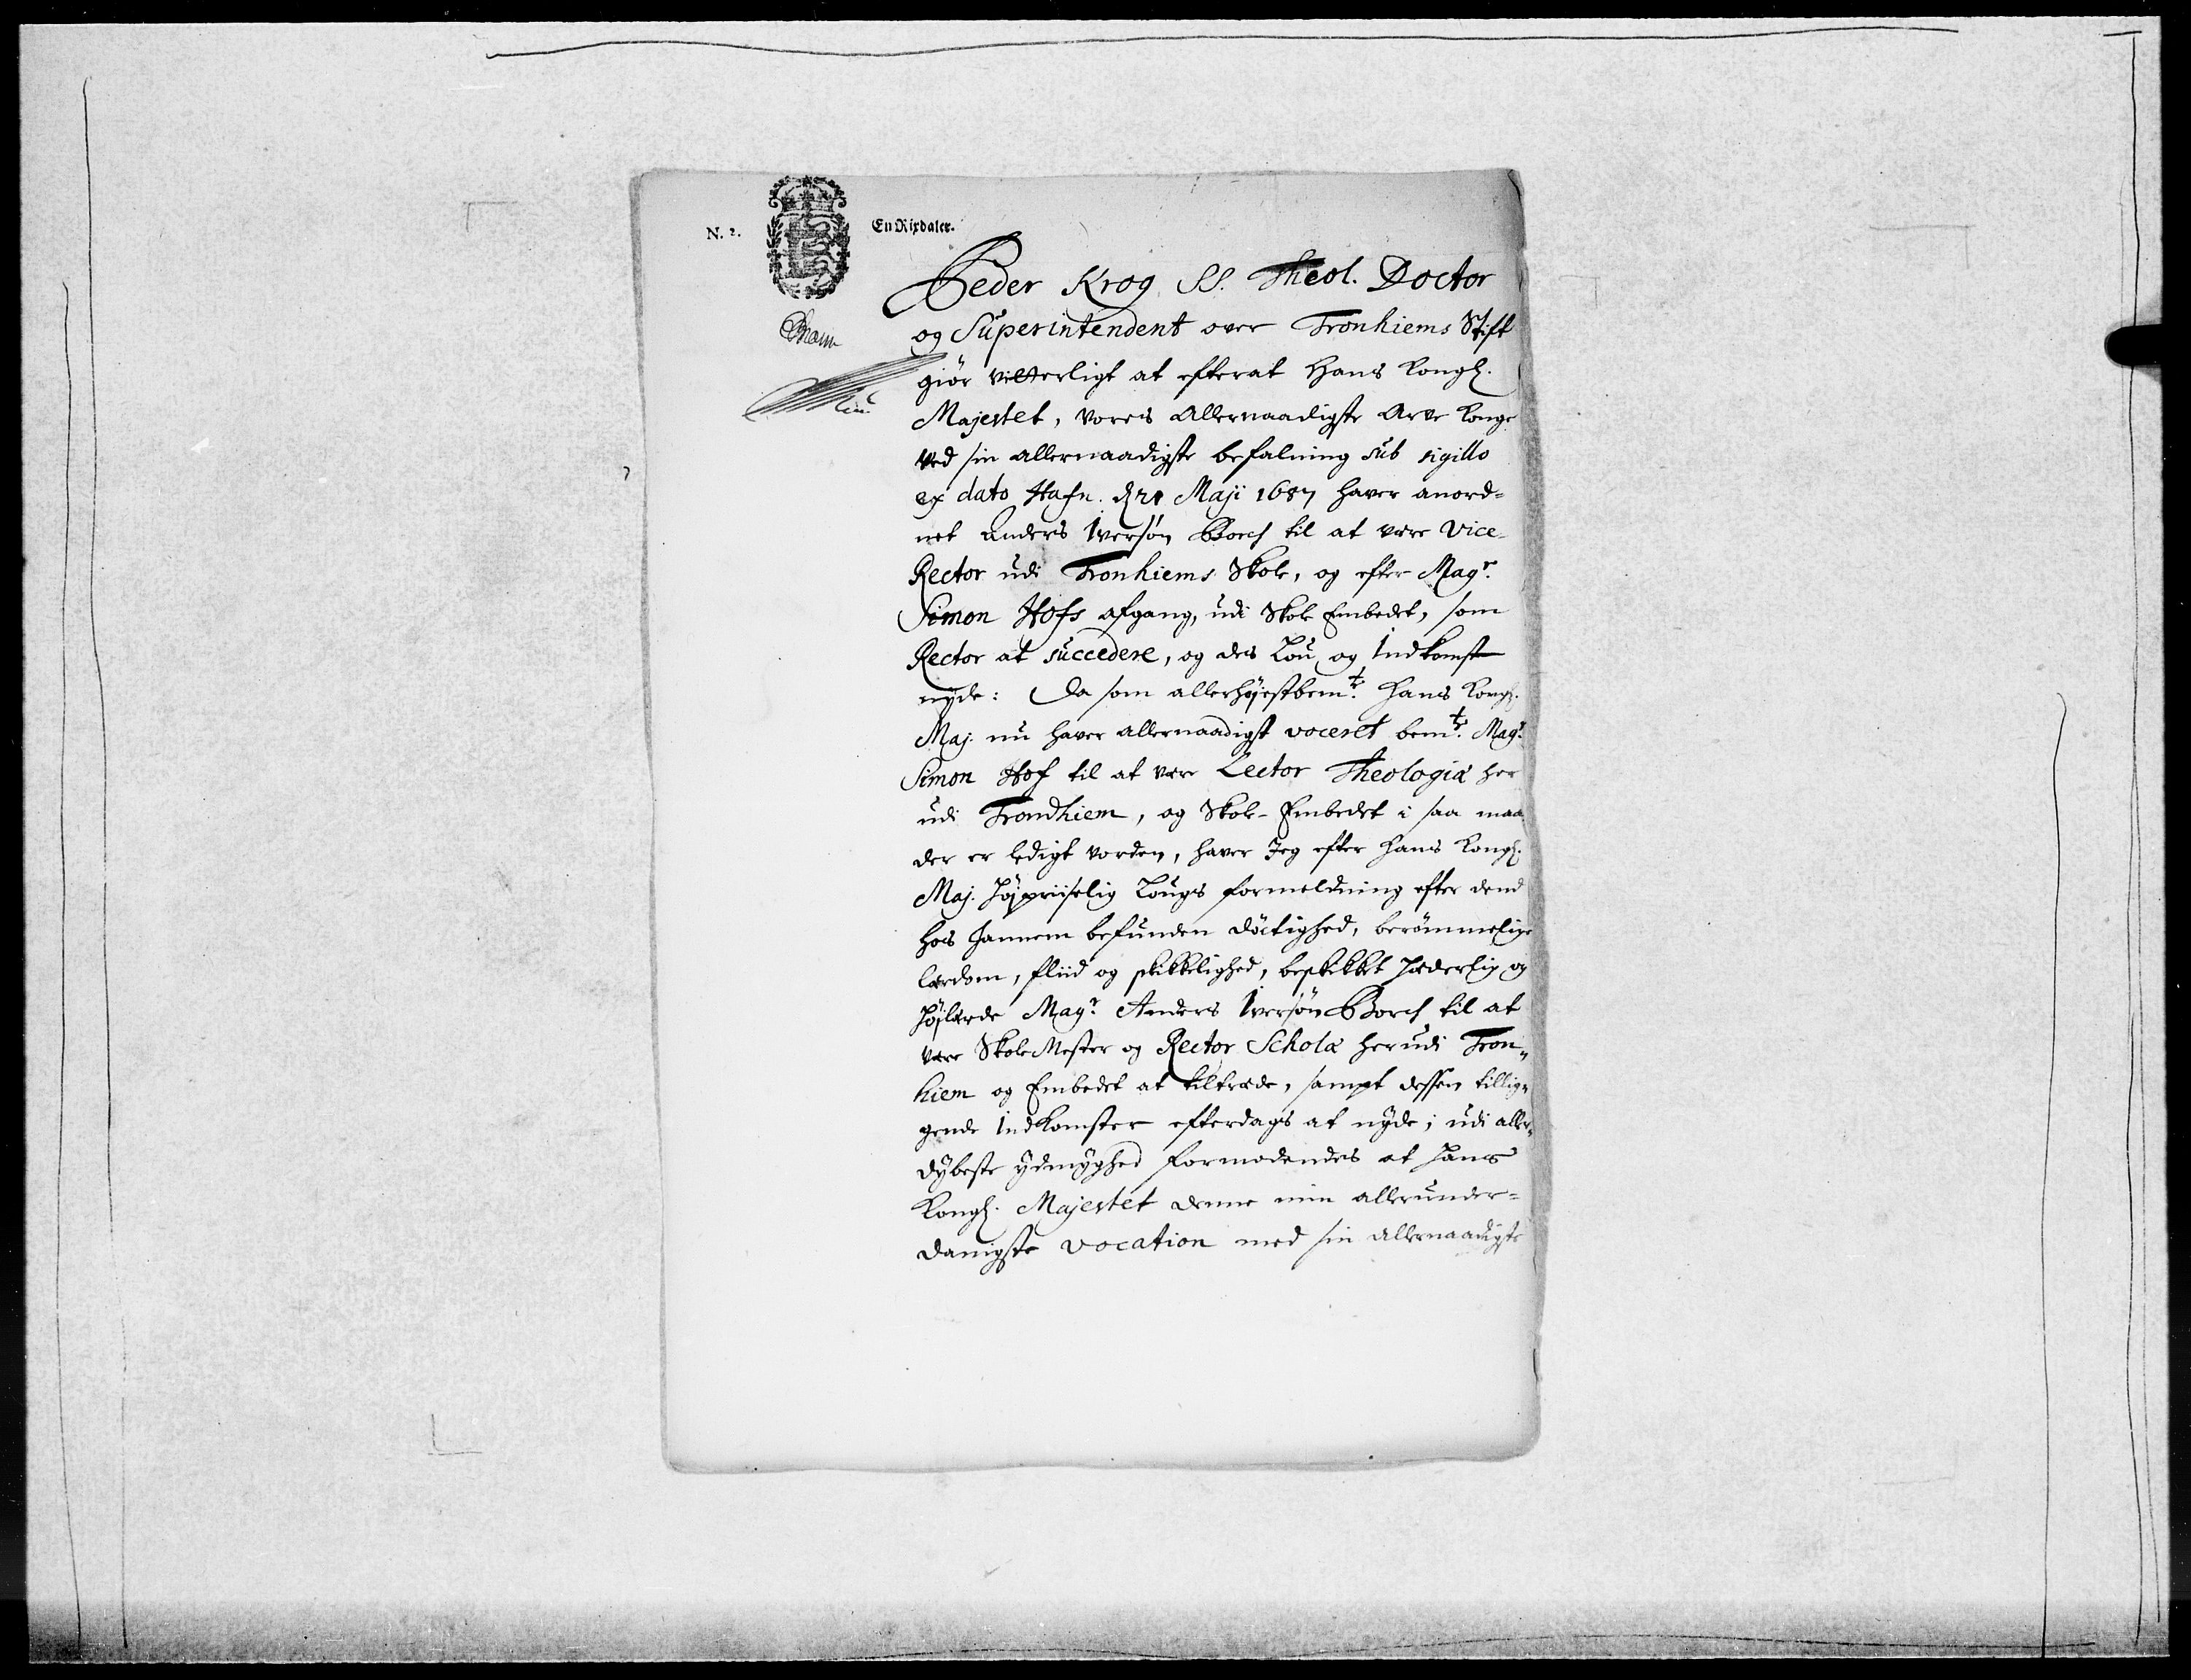 N. 2.
En Rixdaler.
Peder Krog SS. Theol. Doctor
og Superintendent over Tronhiems Stift
giör vitterligt at efterat Hans Kongl.
Majestet, vores Allernaadigste Arve Konge
ved sin allernaadigste befalning sub sigillo
ex dato Hafn. d. 21 Maji 1687 haver anord=
net Anders Iversøn Borch til at være Vice-
Rector udi Tronhiems Skole, og efter Magr.
Simon Hofs afgang, udi Skole Embedet, som
Rector at succedere, og des Lön og Indkomst
nyde: Da som allerhøjestbemte. Hans Kongl.
Maj. nu haver allernaadigst voceret bemte. Magr.
Simon Hof til at være Lector Theologiæ her
udi Trondhiem, og Skole-Embedet i saa maa
der er ledigt vorden, haver Jeg efter Hans Kongl.
Maj. Højpriiselig Lougs formeldning efter dend
hos hannem befunden döctighed, berömmelige
lærdom, fliid og skikkelighed, beskikket Hæderlig og
Højlærde Magr. Anders Iversøn Borch til at
være SkoleMester og Rector Scholæ herudi Tron„
hiem og Embedet at tiltræde, sampt dessen tillig„
gende Indkomster efterdags at nyde; udi aller„
dybeste ydmyghed formodendes at Hans
Kongl. Majestet denne min allerunder=
danigste vocation med sin allernaadigste